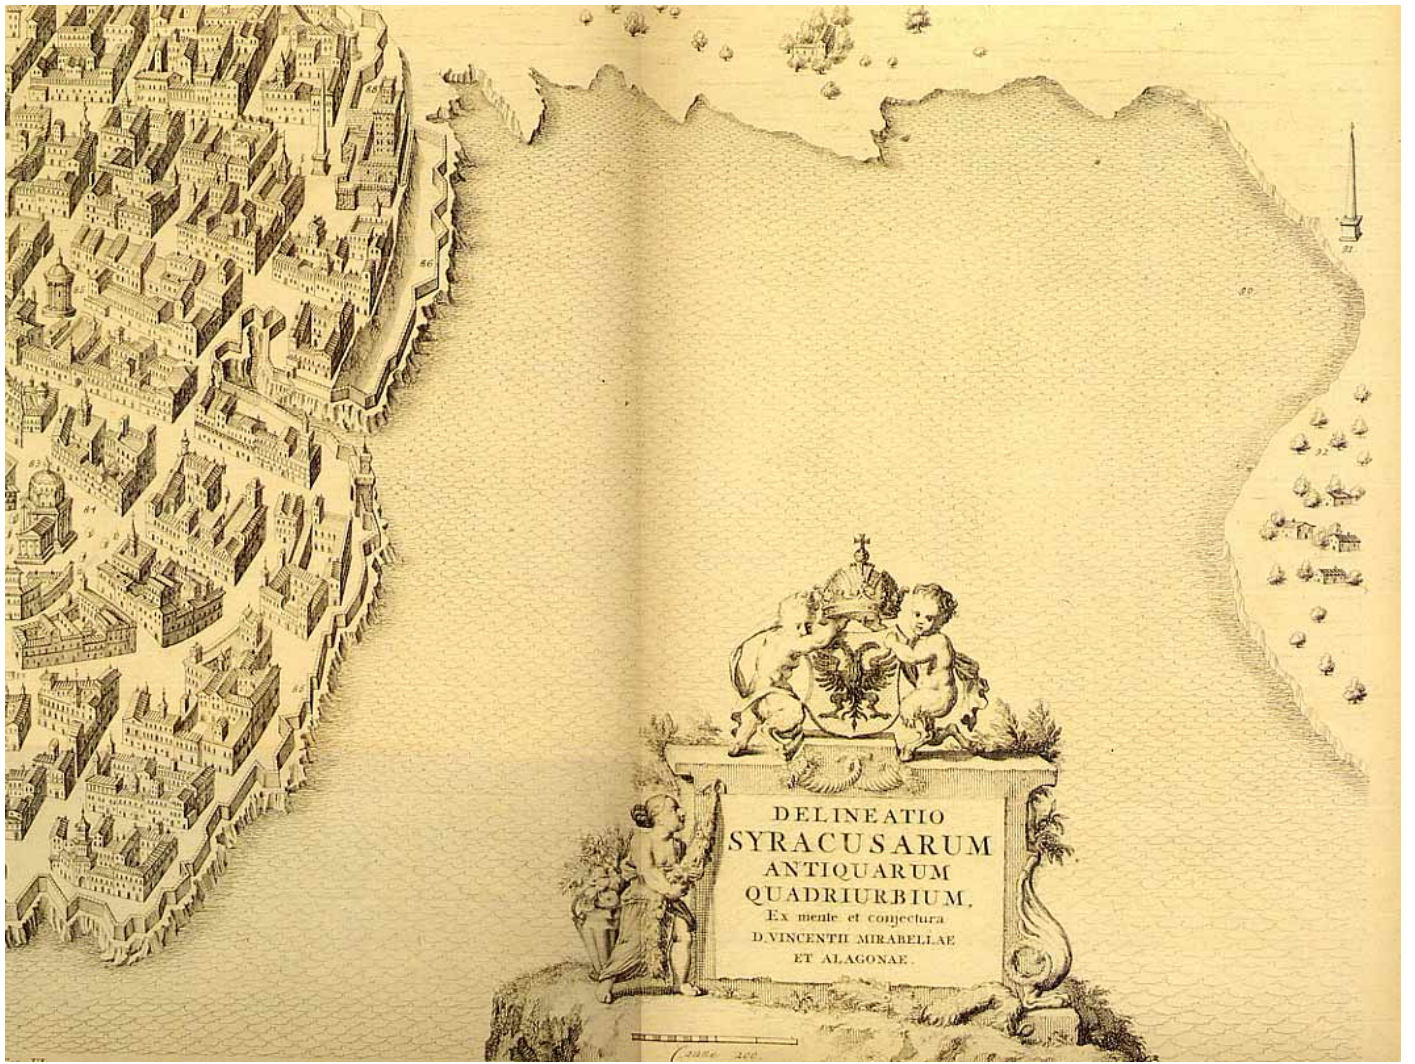 88
86
91
89
92
83
84
85
DELINEATIO
SYRACUSARUM
ANTIQUARUM
QUADRIURBIUM,
Ex mente et conjectura
D. VINCENTII MIRABELLAE
ET ALAGONAE.
Canne 200.